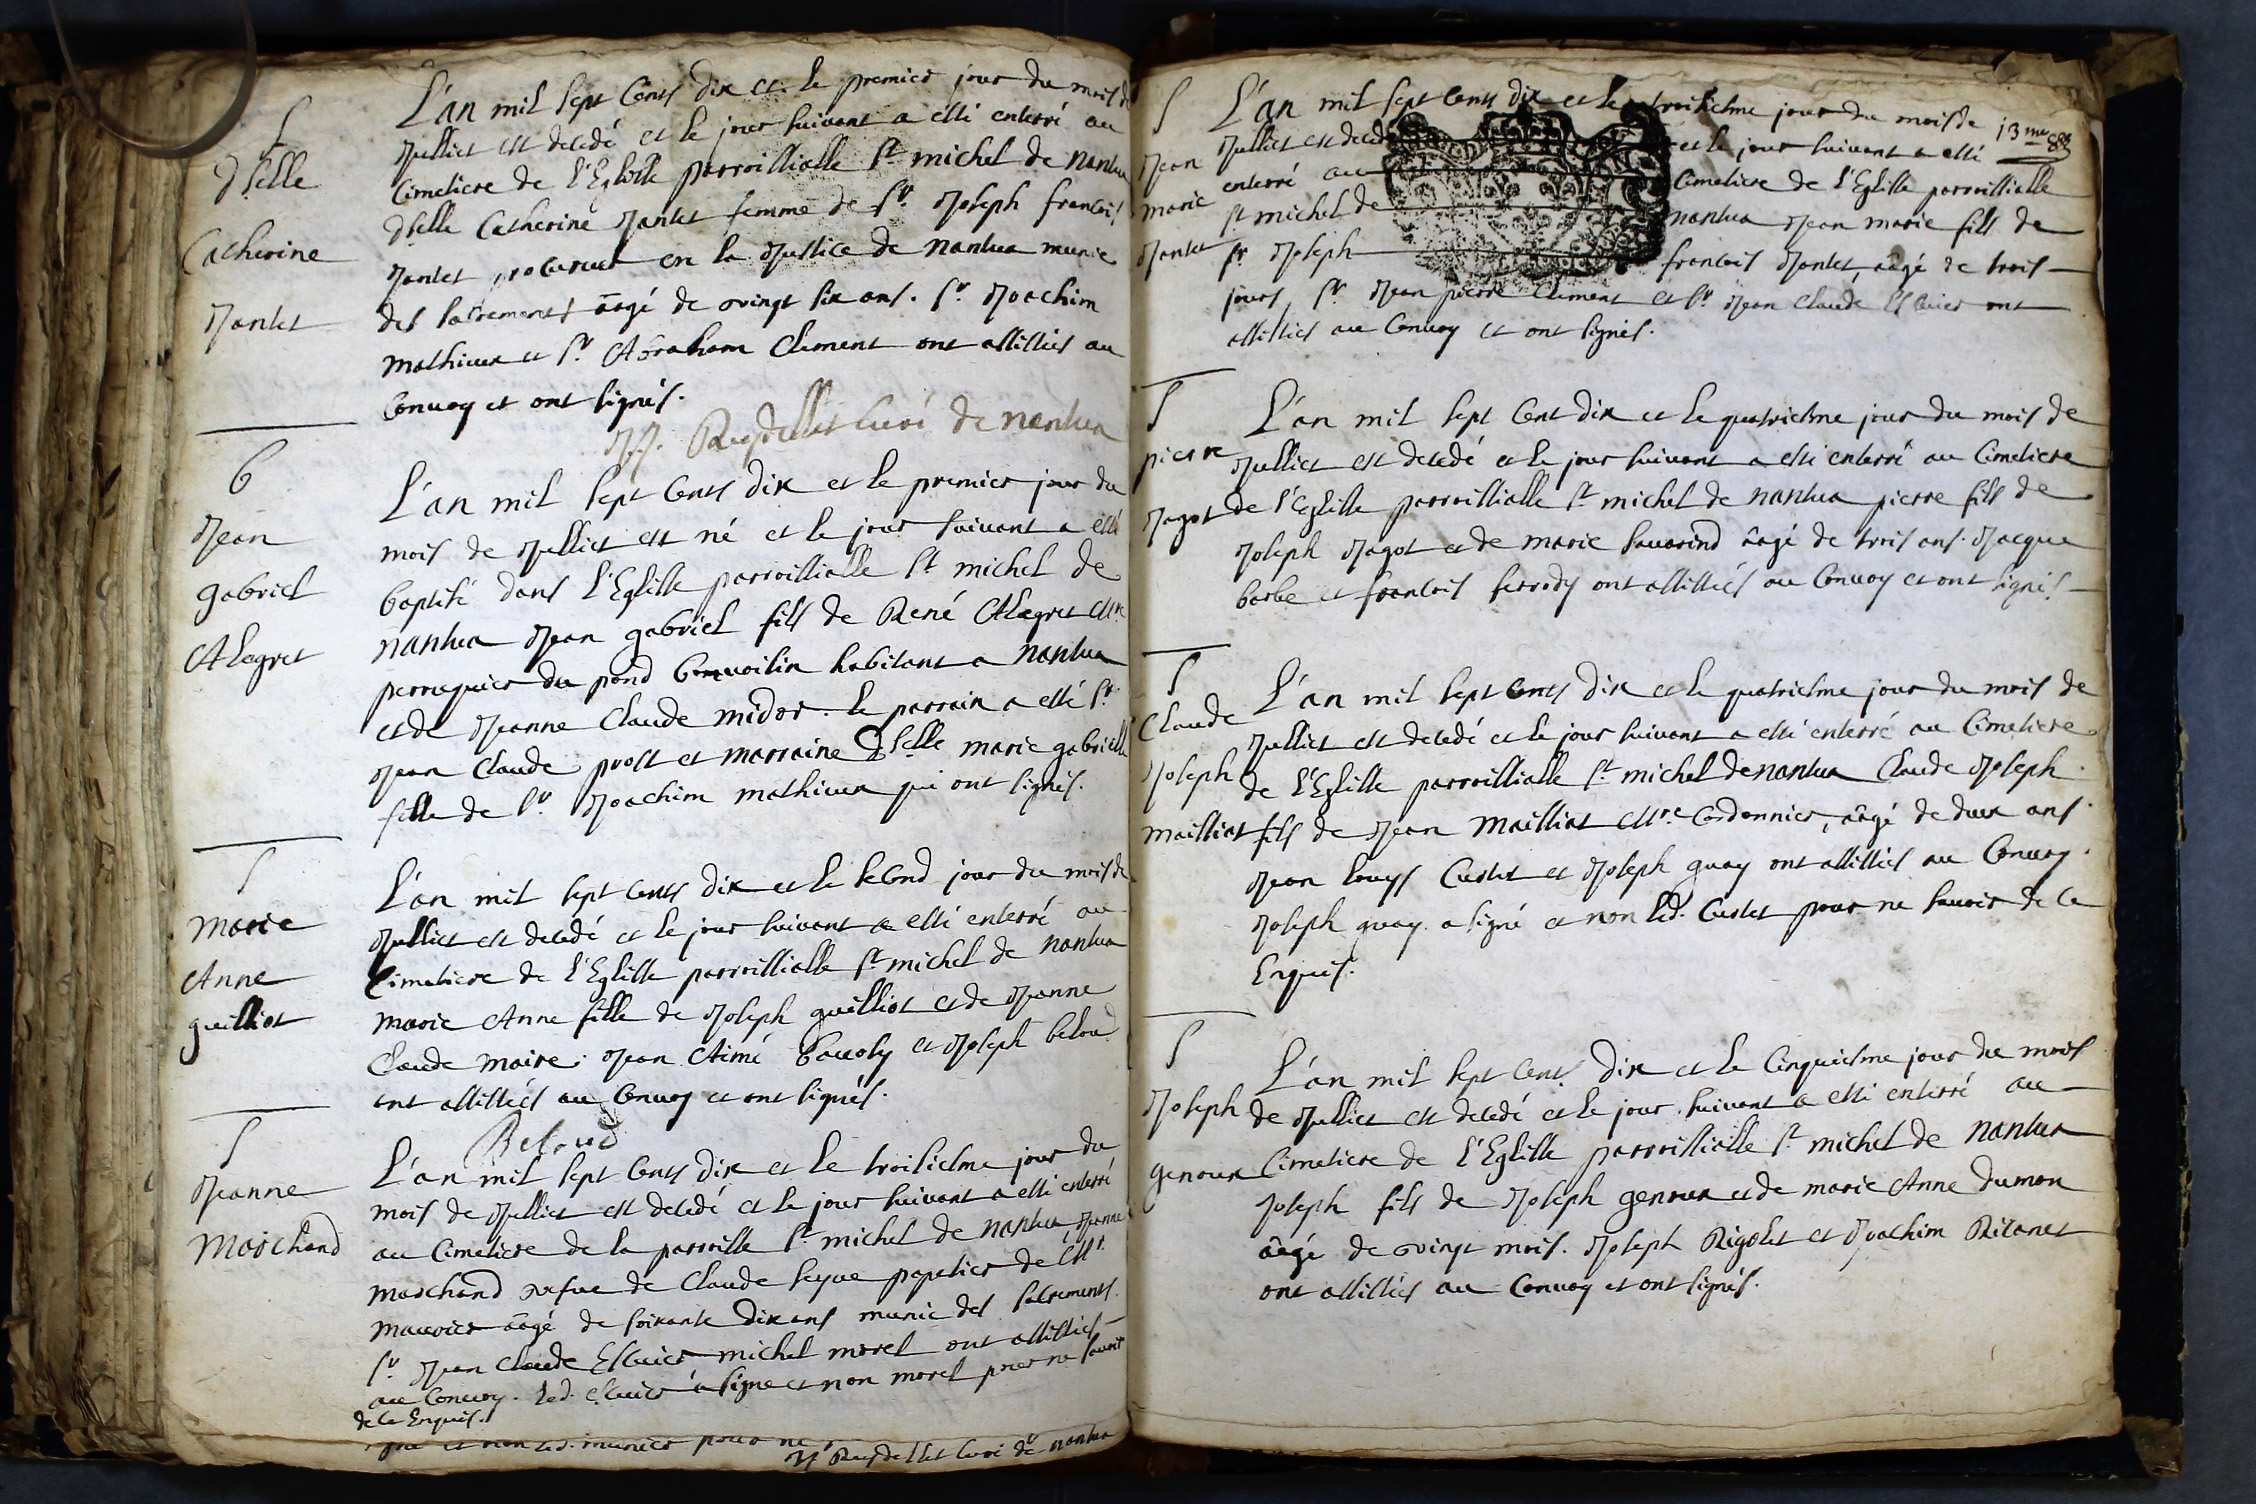 S
dlle
Catherine
Jantet
L'an mil sept Cents dix et le premier jour du mois de
Juillet est decedé et le jour suivant a esté enterré au
Cimetiere de l'Eglise parroissialle St michel de nantua
dlle Catherine Jantet femme de Sr Joseph francois
Jantet procureur en la Justice de nantua munie
des sacrements aagé de vingt six ans. Sr Joachim
mathieux et Sr Abraham Clement ont assistés au
Convoy et ont signés.
JJ. Reydellet Curé de nantua
B
Jean
gabriel
Alegret
L'an mil sept Cents dix et le premier jour du
mois de Juillet est né et le jour suivant a esté
baptisé dans l'Eglise parroissialle St michel de
nantua Jean gabriel fils de René Alegret Mre
perruquier du pond habitant a nantua
et de Jeanne Claude midor. le parrain a esté Sr
Jean Claude prost et marraine dlle marie gabrielle
fille de Sr Joachim mathieux qui ont signés.
S
marie
Anne
guilliot
L'an mil sept Cents dix et le second jour du mois de
Juillet est decedé et le jour suivant a esté enterré au
Cimetiere de l'Eglise parroissialle St michel de nantua
marie Anne fille de Joseph guilliot et de Jeanne
Claude maire. Jean Aimé et Joseph beloud
ont assistés au Convoy et ont signés.
Beloud
S
Jeanne
Marchand
L'an mil sept Cents dix et le troisiesme jour du
mois de Juillet est decedé et le jour suivant a esté enterré
au Cimetiere de la parroisse St michel de nantua Jeanne
marchand vefve de Claude seyve papetier de Mr
mauvier aagé de soixante dix ans munie des sacrements.
Sr Jean Claude Escuier michel morel ont assistés
au Convoy. led. Escuier a signe et non morel pour ne savoir
de ce Enquis.
et non led. munier pour ne
JJ Reydellet Curé de nantua
13me
S
Jean
marie
Jantet
L'an mil sept Cents dix et le troisiesme jour du mois de
Juillet est decedé et le jour suivant a esté
enterré au Cimetiere de l'Eglise parroissialle
St michel de nantua Jean marie fils de
Sr Joseph francois Jantet, aagé de trois
jours, Sr Jean pierre Clement et Sr Jean Claude Escuier ont
assistés au Convoy et ont signés.
S
pierre
Jagot
L'an mil sept Cent dix et le quatriesme jour du mois de
Juillet est decedé et le jour suivant a esté enterré au Cimetiere
de l'Eglise parroissialle St michel de nantua pierre fils de
Joseph Jagot et de marie savarind aagé de trois ans. Jacque
barbe et francois ferrody ont assistés au Convoy et ont signés
S
Claude
Joseph
mailliat
L'an mil sept Cents dix et le quatriesme jour du mois de
Juillet est decedé et le jour suivant a esté enterré au Cimetiere
de l'Eglise parroissialle St michel de nantua Claude Joseph
fils de Jean Mailliat Mre Cordonnier, aagé de deux ans.
Jean Louys Curtet et Joseph guay ont assistés au Convoy.
Joseph guay a signé et non led. Curtet pour ne savoir de ce
Enquis.
S
Joseph
genoux
L'an mil sept Cent dix et le Cinquiesme jour du mois
de Juillet est decedé et le jour suivant a esté enterré au
Cimetiere de l'Eglise parroissialle St michel de nantua
Joseph fils de Joseph genoux et de marie Anne dumon
aagé de vingt mois. Joseph Rigolet et Joachim Ritanet
ont assistés au Convoy et ont signés.